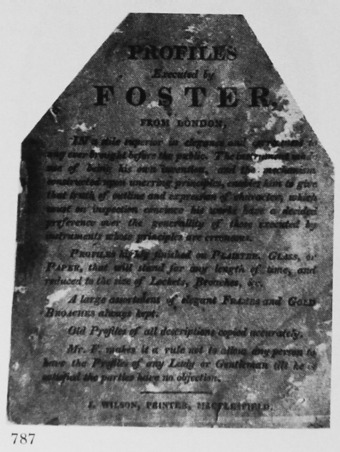 PROFILES
Executed by
FOSTER,
FROM LONDON,
IN a style superior in elegance and
any ever brought before the public. The instrument
use of being his own invention, and the mechanism
constructed upon unerring principles, enables him to give
that truth of outline and expression of character, which
on inspection convince his works have a decided
preference over the generality of those executed by
instruments whose principles are erroneous.
PROFILES highly finished on PLAISTER, GLASS, or
PAPER, that will stand for any length of time, and
reduced to the size of Lockets, Broaches, &c.
A large assortment of elegant FRAMES and GOLD
BROACHES always kept.
Old Profiles of all descriptions copied accurately.
Mr. F. makes it a rule not to allow any person to
have the Profiles of any Lady or Gentleman till he is
satisfied the parties have no objection.
J. WILSON, PRINTER, MACCLESFIELD.
787